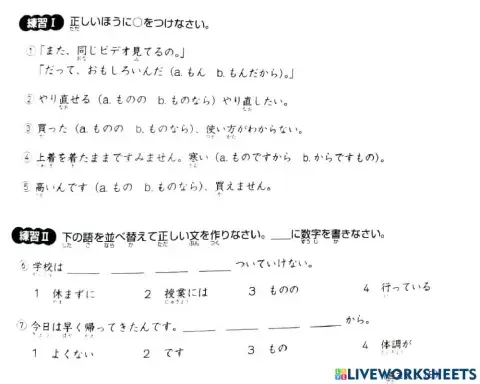 練習Ⅰ 正しいほうに○をつけなさい。
①「また、同じビデオ見てるの。」
「だって、おもしろいんだ（a. もん b. もんだから）。」
② やり直せる（a. ものの b. ものなら）やり直したい。
③ 買った（a. ものの b. ものなら）、使い方がわからない。
④ 上着を着たままですみません。寒い（a. ものですから b. からですもの）。
⑤ 高いんです（a. もの b. ものなら）、買えません。
練習Ⅱ 下の語を並べ替えて正しい文を作りなさい。___に数字を書きなさい。
⑥ 学校は ____ ____ ____ ____ ついていけない。
1 休まずに 2 授業には 3 ものの 4 行っている
⑦ 今日は早く帰ってきたんです。____ ____ ____ ____ から。
1 よくない 2 です 3 もの 4 体調が
LIVEWORKSHEETS